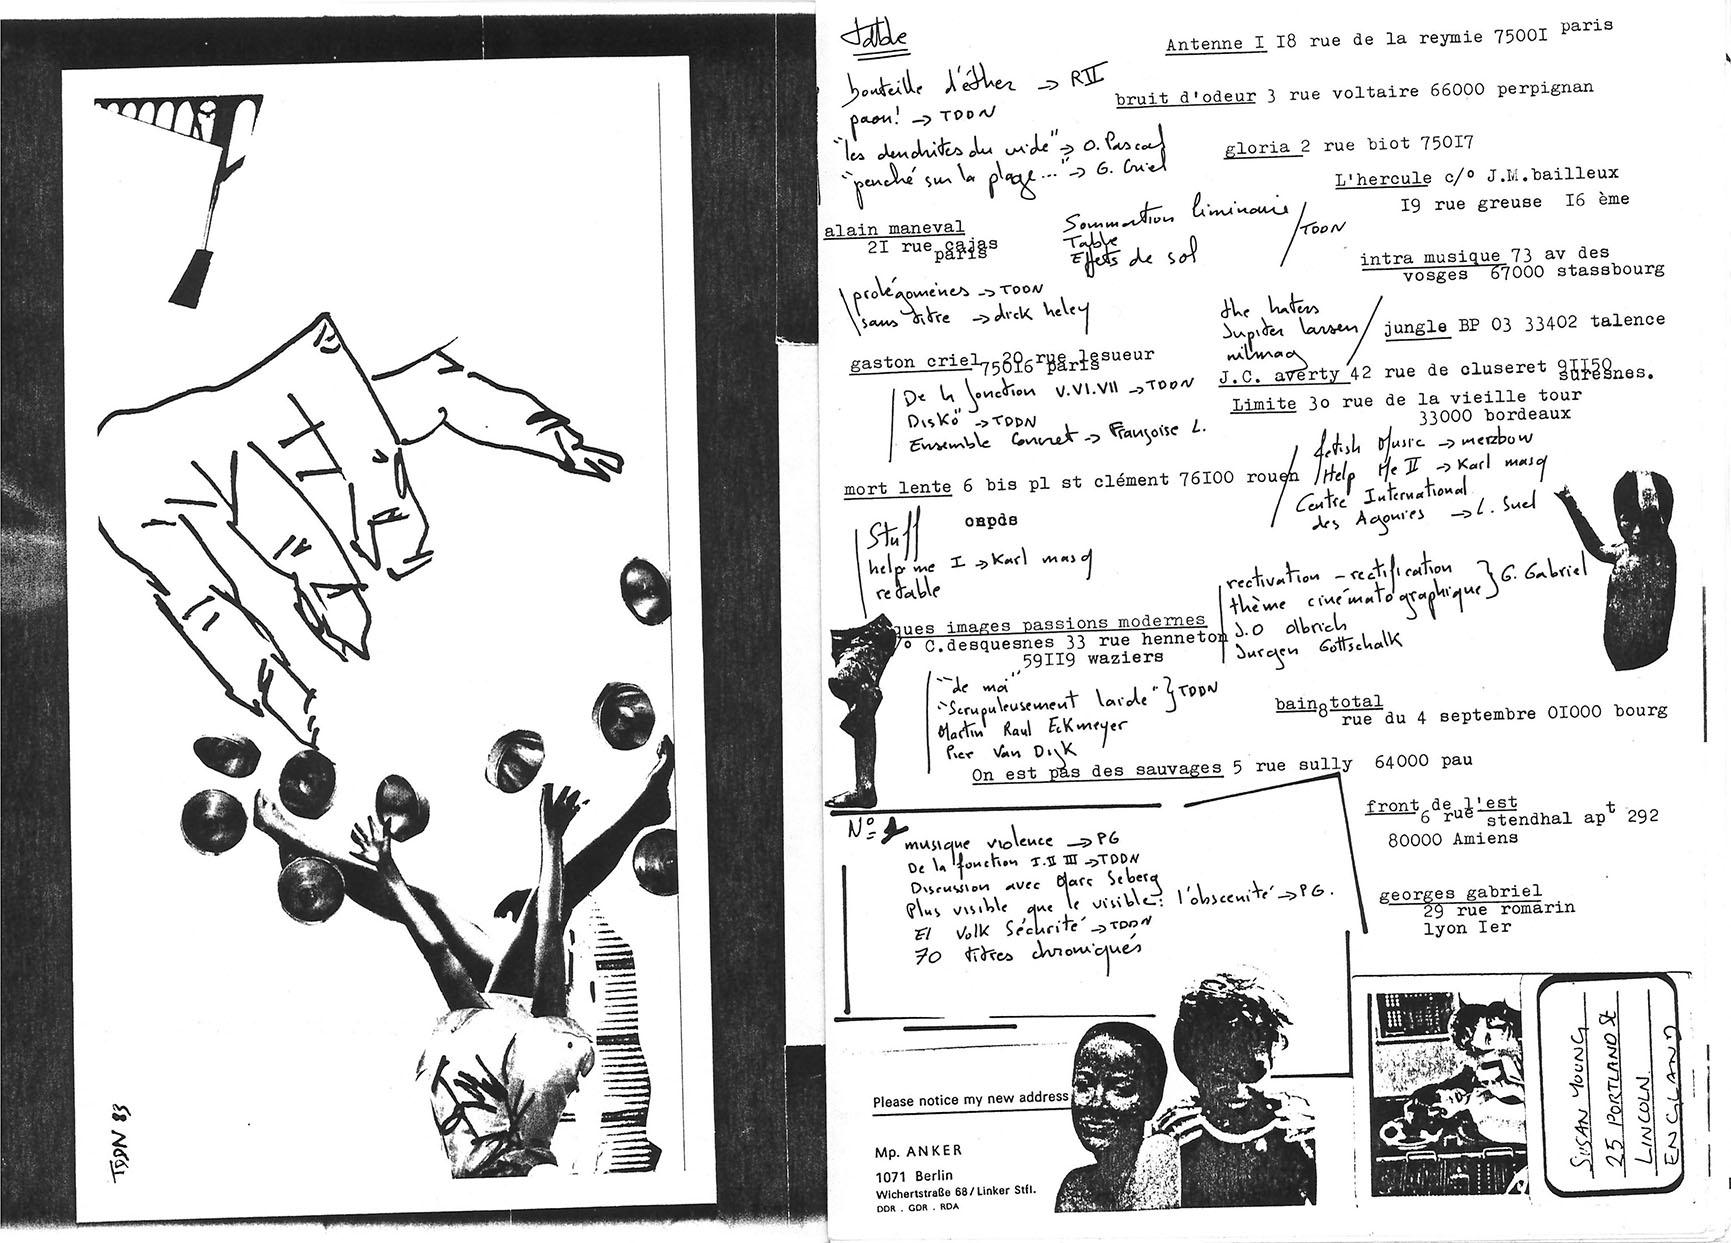 TDDN 83
table
Antenne I I8 rue de la reymie 7500I paris
bouteille d'éther → R II
bruit d'odeur 3 rue voltaire 66000 perpignan
paon! → TDDN
"les dendrites du vide" → O. Pascal
gloria 2 rue biot 750I7
"penché sur la plage..." → G. Criel
L'hercule c/o J.M.bailleux
I9 rue greuse I6 ème
alain maneval
2I rue cajas
paris
Sommation liminaire
Table
Effets de sol
/ TDDN
intra musique 73 av des
vosges 67000 stassbourg
prolégomènes → TDDN
sans titre → dick heley
the haters
Jupiter larsen
nilmag
jungle BP 03 33402 talence
gaston criel 20 rue lesueur
750I6 paris
J.C. averty 42 rue de cluseret 9II50
suresnes.
De la fonction V.VI.VII → TDDN
Diskö" → TDDN
Ensemble Concret → Françoise L.
Limite 3o rue de la vieille tour
33000 bordeaux
mort lente 6 bis pl st clément 76I00 rouen
fetish Music → merzbow
Help Me II → Karl masq
Centre International
des Agonies → L. Suel
Stuff
help me I → Karl masq
retable
rectivation - rectification
thème cinématographique } G. Gabriel
J.O Olbrich
Jurgen Gottschalk
ques images passions modernes
° C.desquesnes 33 rue henneton
59II9 waziers
"de moi"
"Scrupuleusement laide" } TDDN
Martin Raul Eckmeyer
Pier Van Dijk
bain total
8 rue du 4 septembre 0I000 bourg
On est pas des sauvages 5 rue sully 64000 pau
front de l'est
6 rue stendhal apt 292
80000 Amiens
N°= 1
musique violence → PG
De la fonction I.II III → TDDN
Discussion avec Marc Seberg
Plus visible que le visible: l'obscenité → PG.
El Volk Sécurité → TDDN
70 titres chroniqués
georges gabriel
29 rue romarin
lyon Ier
Please notice my new address
Mp. ANKER
1071 Berlin
Wichertstraße 68 / Linker Stfl.
DDR . GDR . RDA
SUSAN YOUNG
25 PORTLAND St
LINCOLN
ENGLAND